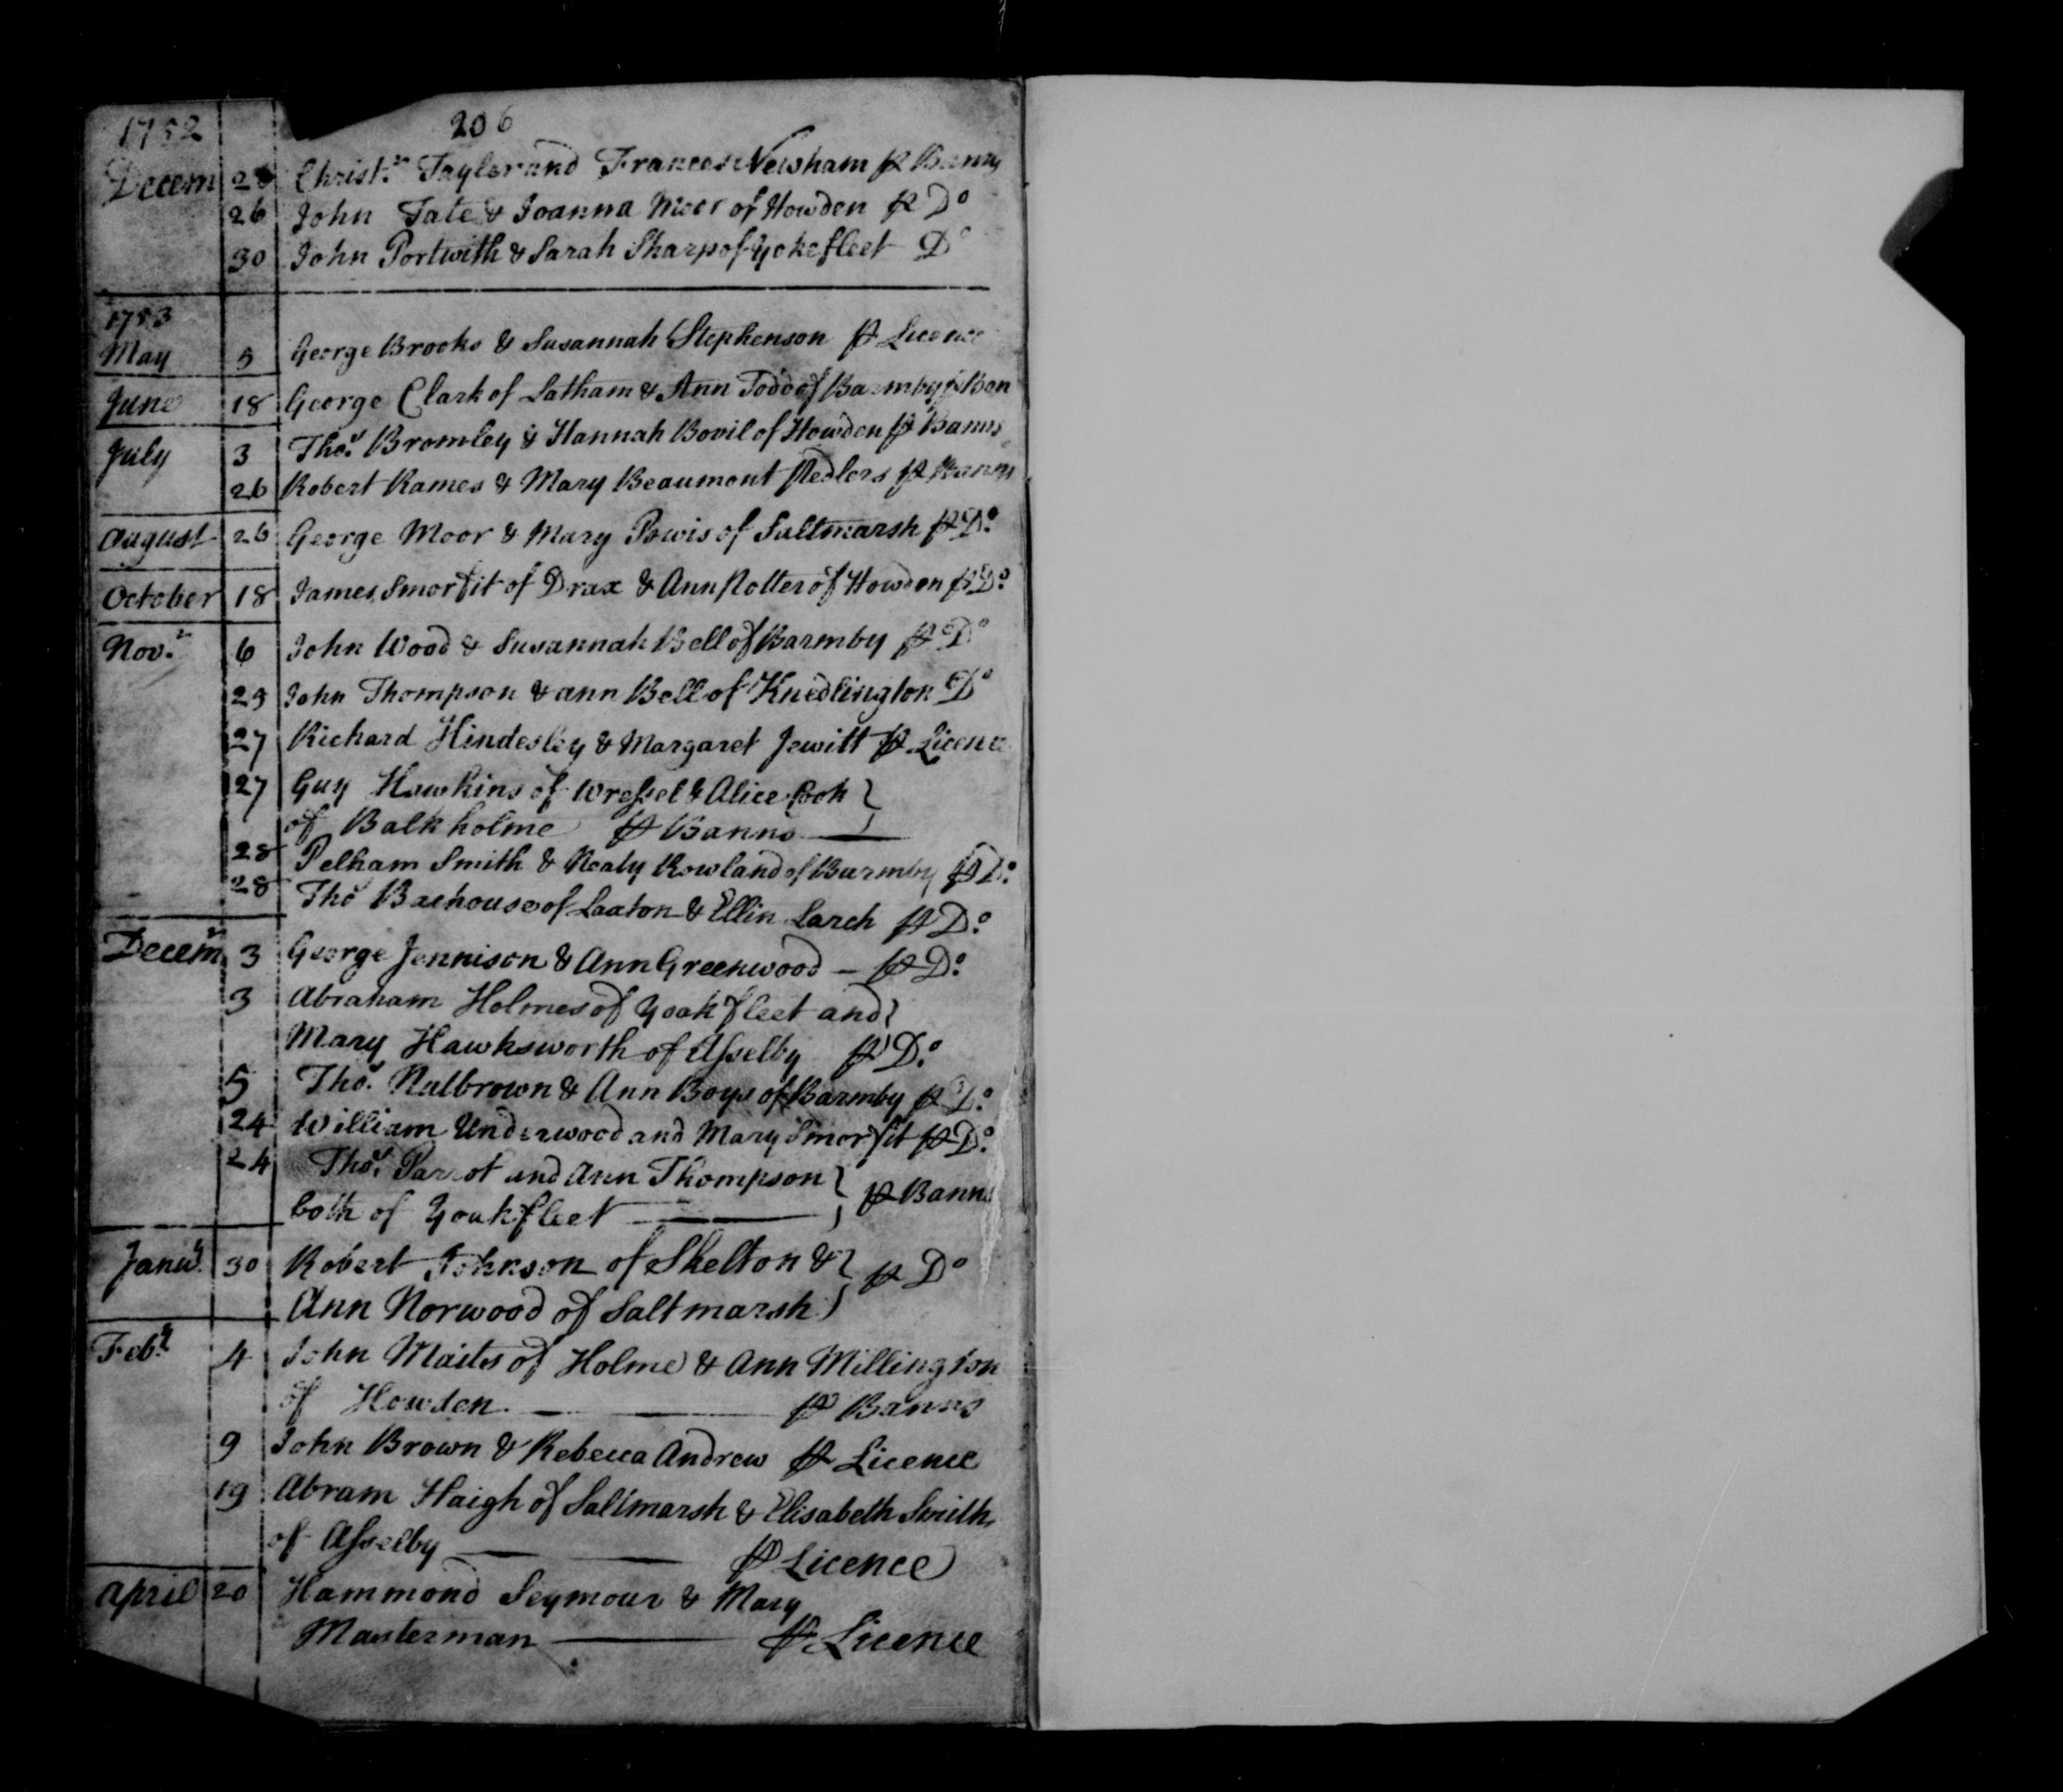 206
1752
Decem Christr. Taylor and Frances Newsham P Banns
26 John Tate & Joanna Moor of Howden P Do
30 John Portwith & Sarah Sharp of Yokefleet Do
1753
May 5 George Brooks & Susannah Stephenson P Licence
June 18 George Clark of Latham & Ann Todd of Barmby P Ban
July 3 Thos. Bromley & Hannah Bovil of Howden P Banns
26 Robert Rames & Mary Beaumont Pedlers P Banns
August 26 George Moor & Mary Powis of Saltmarsh P Do.
October 18 James Smorfit of Drax & Ann Notter of Howden P Do.
Novr. 6 John Wood & Susannah Bell of Barmby P Do
John Thompson & ann Bell of Knedlington Do
27 Richard Hindesley & Margaret Jewitt P Licence
27 Guy Hawkins of Wressel & Alice Cook
of Balkholme P Banns
28 Pelham Smith & Nealy Rowland of Barmby P Do.
28 Thos of Laxton & Ellin Larch P Do.
Decemr 3 George Jennison & Ann Greenwood – P Do.
3 Abraham Holmes of Yoakfleet and
Mary Hawksworth of Asselby P Do.
5 Thos. Nalbrown & Ann Boys of Barmby P Do.
24 William Underwood and Mary Smorfit P Do.
24 Thos. Parrot and Ann Thompson
both of Yoakfleet P Banns
Janu.y 30 Robert Johnson of Skelton &
Ann Norwood of Saltmarsh P Do
Feb.y 4 John Maites of Holme & Ann Millington
of Howden P Banns
9 John Brown & Rebecca Andrew P Licence
19 Abram Haigh of Saltmarsh & Elisabeth Smith
of Asselby P Licence
april 20 Hammond Seymour & Mary
Masterman P Licence